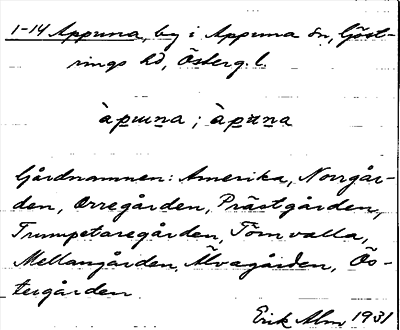 1-14 Appuna, by i Appuna sn, Göst-
rings hd, Österg. l.
àpuna ; àpuna
Gårdnamnen: Amerika, Norrgår-
den, Orregården, Prästgården,
Trumpetaregården, Tomvalla,
Mellangården, Älvagården, Ös-
tergården
Erik Alm 1931